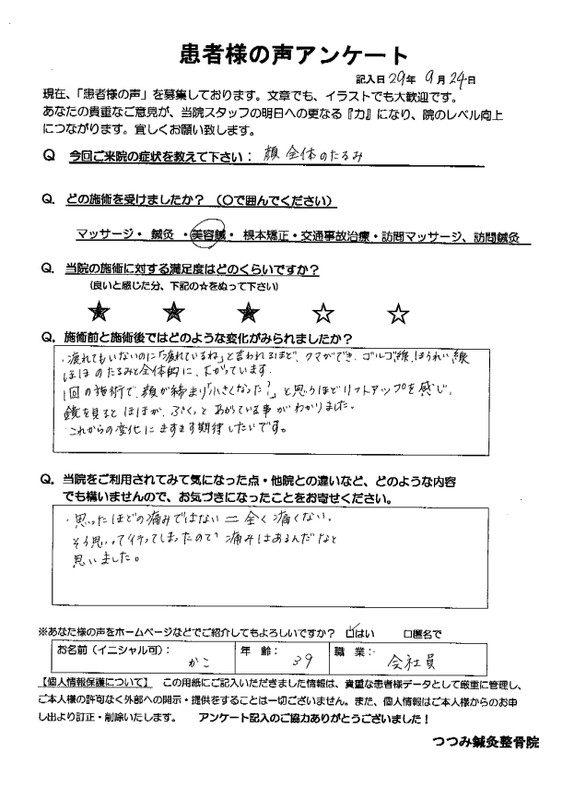 患者様の声アンケート
記入日 29年 9月 24日
現在、「患者様の声」を募集しております。文章でも、イラストでも大歓迎です。
あなたの貴重なご意見が、当院スタッフの明日への更なる『力』になり、院のレベル向上
につながります。宜しくお願い致します。
Q 今回ご来院の症状を教えて下さい： 顔全体のたるみ
Q. どの施術を受けましたか？（〇で囲んでください）
マッサージ・ 鍼灸 ・美容鍼・ 根本矯正・交通事故治療・訪問マッサージ、訪問鍼灸
Q. 当院の施術に対する満足度はどのくらいですか？
（良いと感じた分、下記の☆をぬって下さい）
★ ★ ★ ☆ ☆
Q. 施術前と施術後ではどのような変化がみられましたか？
・疲れてもいないのに「疲れているね」と言われるほど、クマができ、ゴルゴ線、ほうれい線
ほほのたるみと全体的に、下がっています。
1回の施術で、顔が締まり「小さくなった？」と思うほどリフトアップを感じ、
鏡を見るとほほが、ぷくっとあがっている事がわかりました。
これからの変化にますます期待したいです。
Q. 当院をご利用されてみて気になった点・他院との違いなど、どのような内容
でも構いませんので、お気づきになったことをお寄せください。
・思ったほどの痛みではない＝全く痛くない。
そう思って行ってしまったので 痛みはあるんだなと
思いました。
※あなた様の声をホームページなどでご紹介してもよろしいですか？ ☑はい □匿名で
お名前（イニシャル可）： かこ 年 齢： 39 職 業： 会社員
【個人情報保護について】 この用紙にご記入いただきました情報は、貴重な患者様データとして厳重に管理し、
ご本人様の許可なく外部への開示・提供をすることは一切ございません。また、個人情報はご本人様からのお申
し出より訂正・削除いたします。 アンケート記入のご協力ありがとうございました！
つつみ鍼灸整骨院